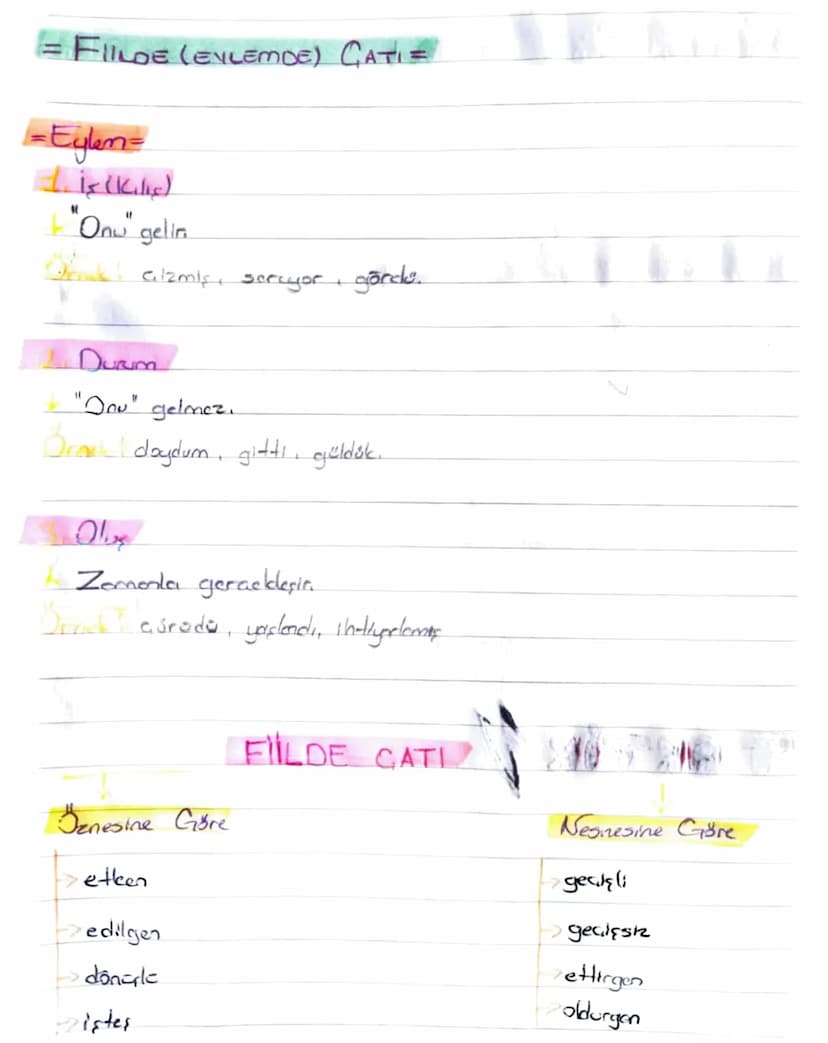 = FİİLDE (EYLEMDE) ÇATI =
= Eylem =
1. İş (Kılış)
"Onu" gelir.
Örnek: çizmiş, seriyor, gördü.
2. Durum
"Onu" gelmez.
Örnek: doydum, gitti, güldük.
3. Oluş
Zamanla gerçekleşir.
Örnek: çürüdü, yaşlandı, ihtiyarlamış
FİİLDE ÇATI
Öznesine Göre
Nesnesine Göre
→ etken
→ geçişli
→ edilgen
→ geçişsiz
→ dönüşlü
→ ettirgen
→ işteş
→ oldurgan